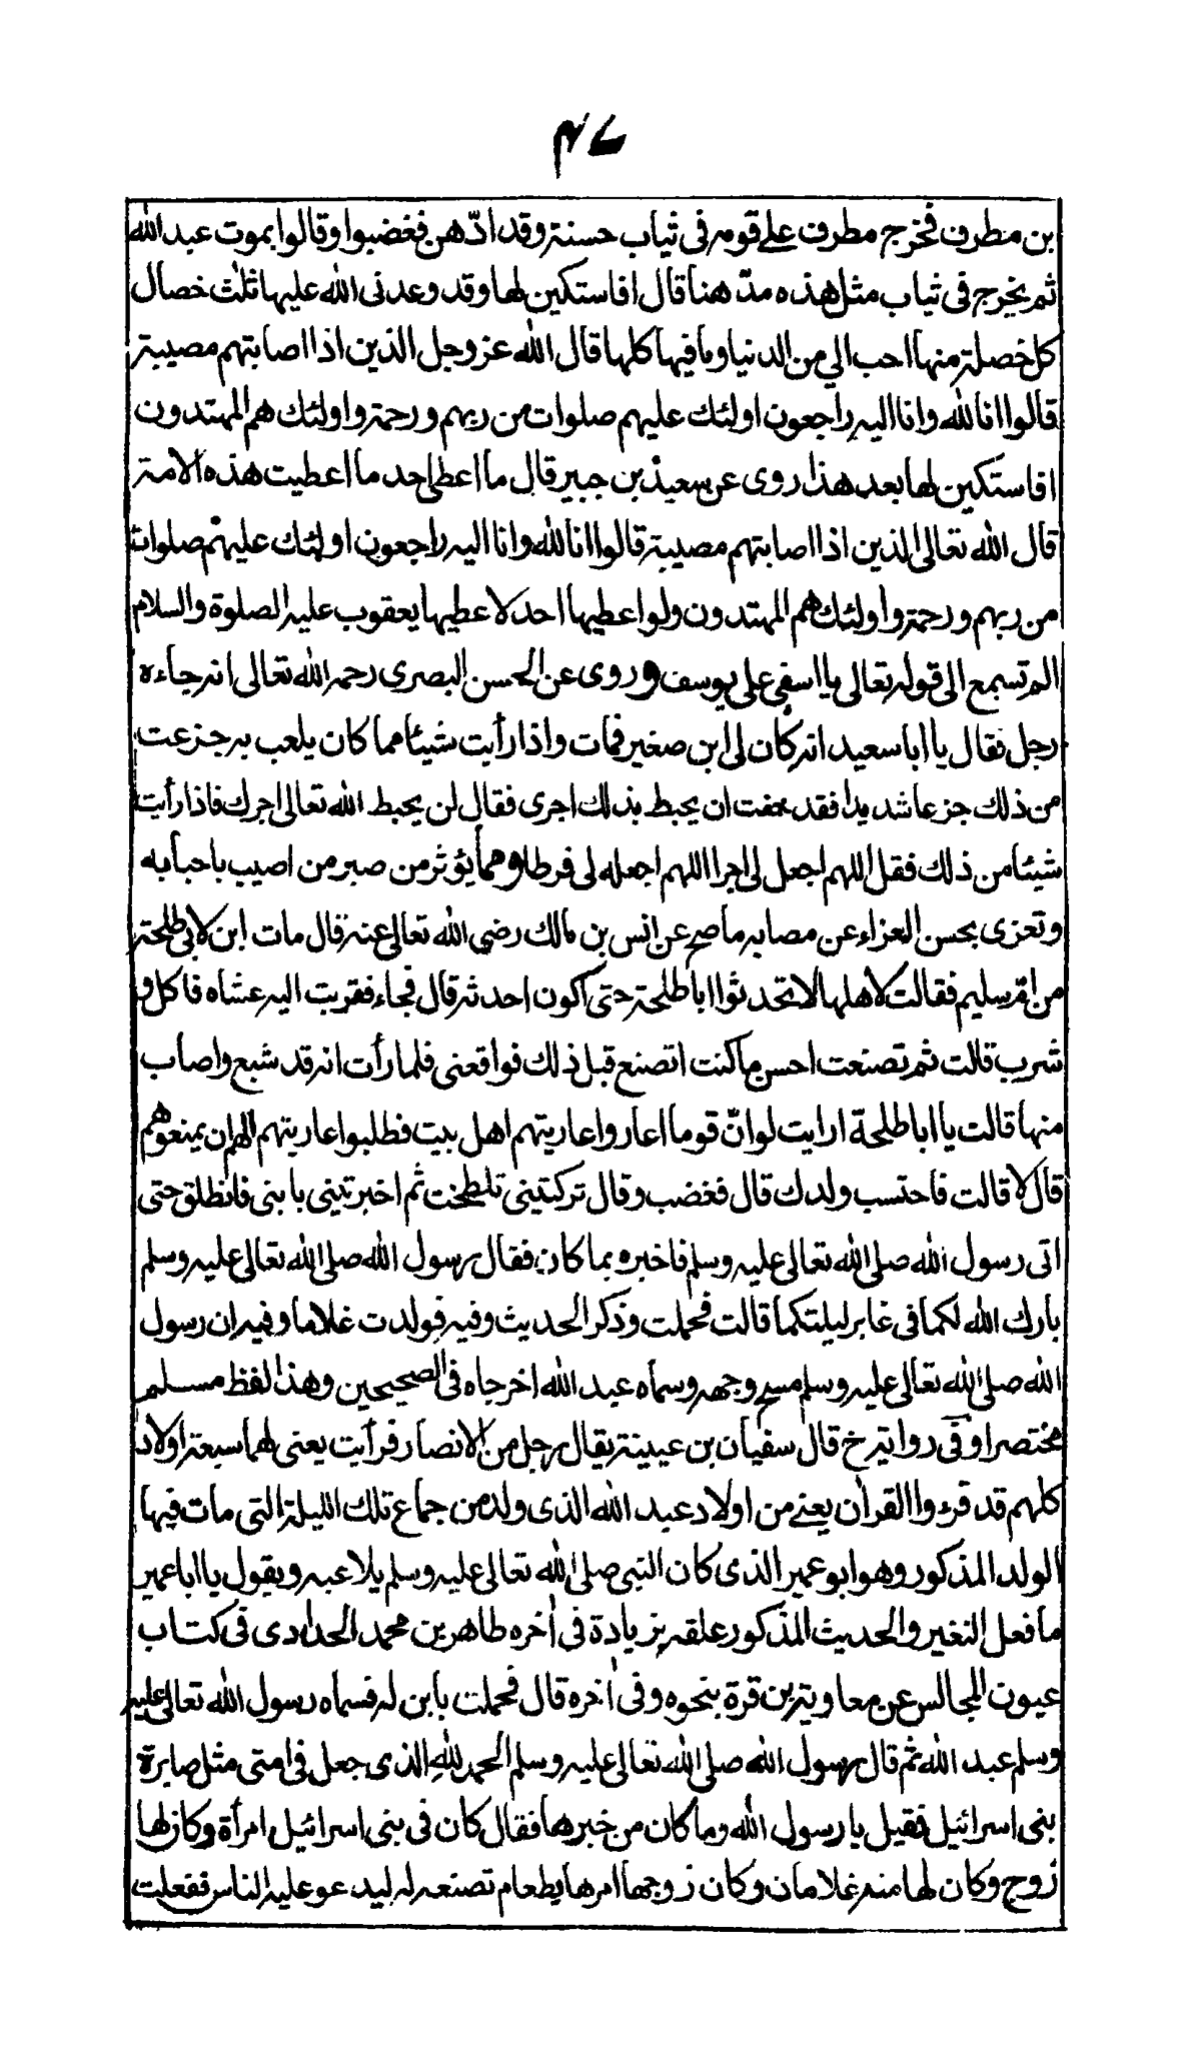 ٤٧
بن مطرف فخرج مطرف على قومه فى ثياب حسنة وقد ادّهن فغضبوا وقالوا بموت عبد الله
ثم يخرج فى ثياب مثل هذه مدّهنا قال افاستكين لها وقد وعدنى الله عليها ثلٰث خصال
كل خصلة منها احب الي من الدنيا وما فيها كلها قال الله عز وجل الذين اذا اصابتهم مصيبة
قالوا انا لله وانا اليه راجعون اولئك عليهم صلوات من ربهم ورحمة واولئك هم المهتدون
افاستكين لها بعد هذا روى عن سعيد بن جبير قال ما اعطى احد ما اعطيت هذه الامة
قال الله تعالى الذين اذا اصابتهم مصيبة قالوا انا لله وانا اليه راجعون اولئك عليهم صلوات
من ربهم ورحمة واولئك هم المهتدون ولو اعطيها احد لاعطيها يعقوب عليه الصلوة والسلام
الم تسمع الى قوله تعالى يا اسفى على يوسف وروى عن الحسن البصرى رحمه الله تعالى انه جاءه
رجل فقال يا ابا سعيد انه كان لى ابن صغير فمات واذا رأيت شيئا مما كان يلعب به جزعت
من ذلك جزعا شديدا فقد خفت ان يحبط بذلك اجرى فقال لن يحبط الله تعالى اجرك فاذا رأيت
شيئا من ذلك فقل اللهم اجعل لى اجرا اللهم اجعله لى فرطا ومما يؤثر من صبر من اصيب باحبابه
وتعزى بحسن العزاء عن مصابه ما صح عن انس بن مالك رضى الله تعالى عنه قال مات ابن لابى طلحة
من ام سليم فقالت لاهلها لا تحدثوا ابا طلحة حتى اكون احدثه قال فجاء فقربت اليه عشاه فاكل و
شرب قالت ثم تصنعت احسن ما كنت اتصنع قبل ذلك فواقعنى فلما رأت انه قد شبع واصاب
منها قالت يا ابا طلحة ارايت لو انّ قوما اعاروا عاريتهم اهل بيت فطلبوا عاريتهم الهم ان يمنعوهم
قال لا قالت فاحتسب ولدك قال فغضب وقال تركتينى تلطخت ثم اخبرتينى بابنى فانطلق حتى
اتى رسول الله صلى الله تعالى عليه وسلم فاخبره بما كان فقال رسول الله صلى الله تعالى عليه وسلم
بارك الله لكما فى غابر ليلتكما قالت فحملت وذكر الحديث وفيه فولدت غلاما وفيه ان رسول
الله صلى الله تعالى عليه وسلم مسح وجهه وسماه عبد الله اخرجاه فى الصحيحين وهذا لفظ مسلم
مختصرا وفى رواية خ قال سفيان بن عيينة يقال رجل من الانصار فرأيت يعنى لهما سبعة اولاد
كلهم قد قرءوا القراٰن يعنى من اولاد عبد الله الذى ولد من جماع تلك الليلة التى مات فيها
الولد المذكور وهو ابو عمير الذى كان النبى صلى الله تعالى عليه وسلم يلاعبه ويقول يا ابا عمير
ما فعل النغير والحديث المذكور علقه بزيادة فى اٰخره طاهر بن محمد الحدادى فى كتاب
عيون المجالس عن معاوية بن قرة بنحوه وفى اٰخره قال فحملت بابن له فسماه رسول الله تعالى عليه
وسلم عبد الله ثم قال رسول الله صلى الله تعالى عليه وسلم الحمد لله الذى جعل فى امتى مثل صابرة
بنى اسرائيل فقيل يا رسول الله وما كان من خبرها فقال كان فى بنى اسرائيل امرأة وكان لها
زوج وكان لها منه غلامان وكان زوجها امرها بطعام تصنعه له ليدعو عليه الناس ففعلت